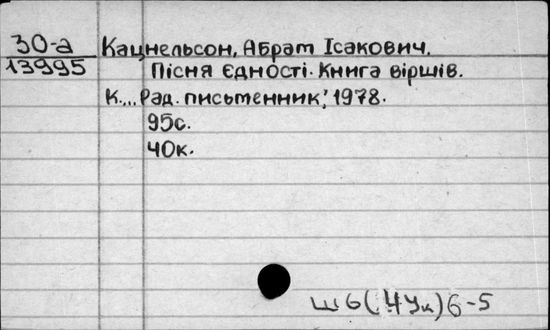 30-а Кацнельсон, Абрам Ісакович.
13995 Пісня Єдності. Книга віршів.
К., „Рад. письменник", 1978.
95с.
40к.
Ш6(4Ук)6-5